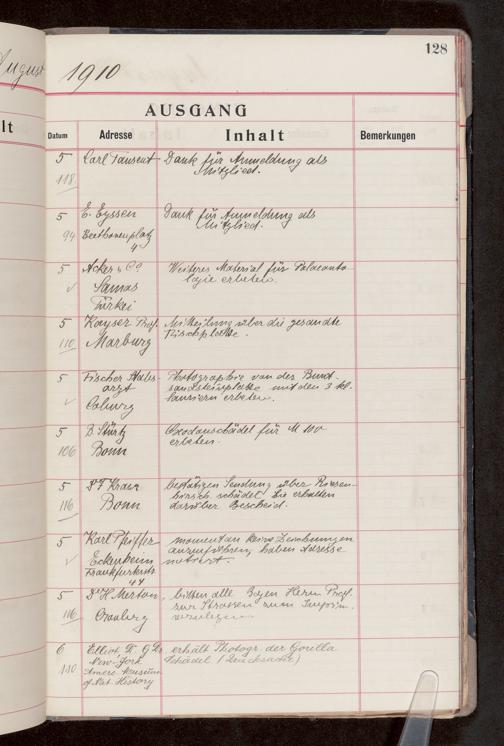 August
128
1910
AUSGANG
lt
Datum Adresse Inhalt Bemerkungen
5 Carl Dank für Anmeldung als
118. Mitglied.
5 E. Eyssen Dank für Anmeldung als
94 Beethovenplatz Mitglied.
4
5 Acker & Co Weiteres Material für Palaeonto
✓ Samos logie erbeten.
Türkei
5 Kayser Prof. Mitteilung über die gesandte
110 Marburg Fischplatte.
5 Fischer Stabs- Photographie von der Bunt-
arzt sandsteinplatte mit den 3 kl.
✓ Coburg Sauriern erbeten.
5 B. Stürtz schädel für M 100
106 Bonn erbeten.
5 Dr F. Krantz bestätigen Sendung über Riesen-
116 Bonn hirsch schädel. Sie erhalten
darüber Bescheid.
5 Karl Pfeiffer momentan keine Zeichnungen
✓ Eckenheim auszuführen, haben Adresse
Frankfurterstr. notiert.
44
5 Dr H. Merton, bitten alle Herrn Prof.
116 zur Strassen zum
6 Elliot, D. G Dr. erhält Photogr. der Gorilla
110 New-York Schädel
Museum
of Nat. History